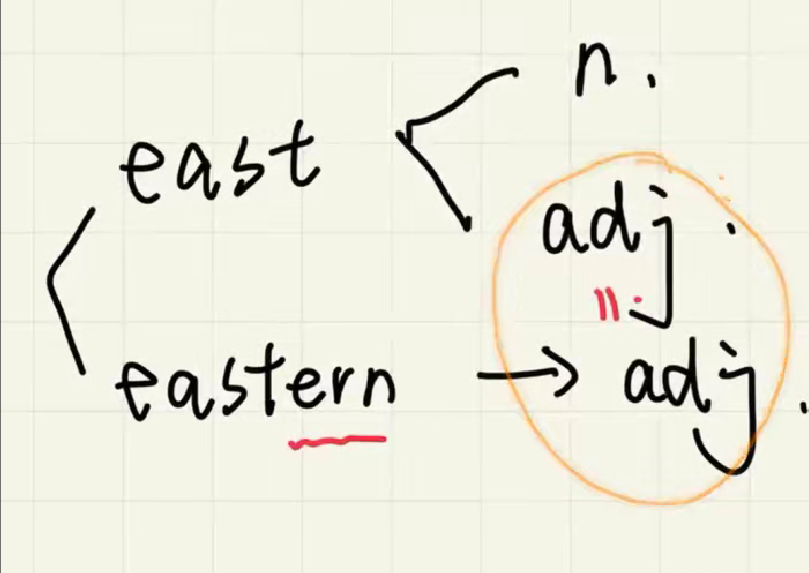 n.
east
adj.
eastern → adj.